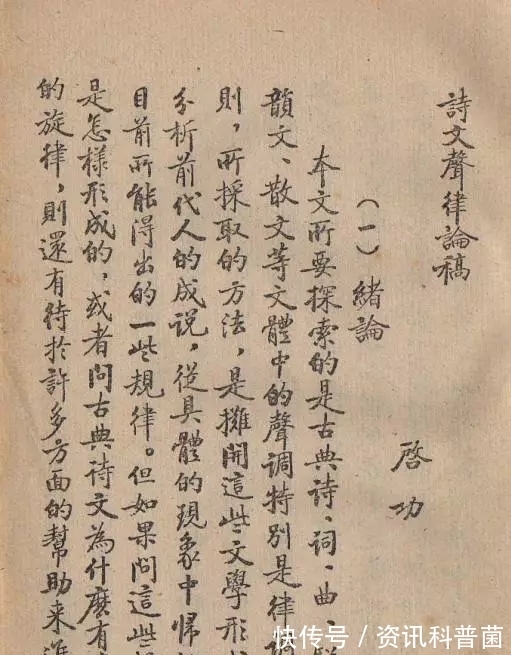 詩文聲律論稿
啓功
(一) 緒論
本文所要探索的是古典詩、詞、曲、
韻文、散文等文體中的聲調特別是律
則,所採取的方法,是攤開這些文學形
分析前代人的成說,從具體的現象中歸
目前所能得出的一些規律。但如果問這些
是怎樣形成的,或者問古典詩文為什麼有
的旋律,則還有待於許多方面的幫助来
快传号/资讯科普菌